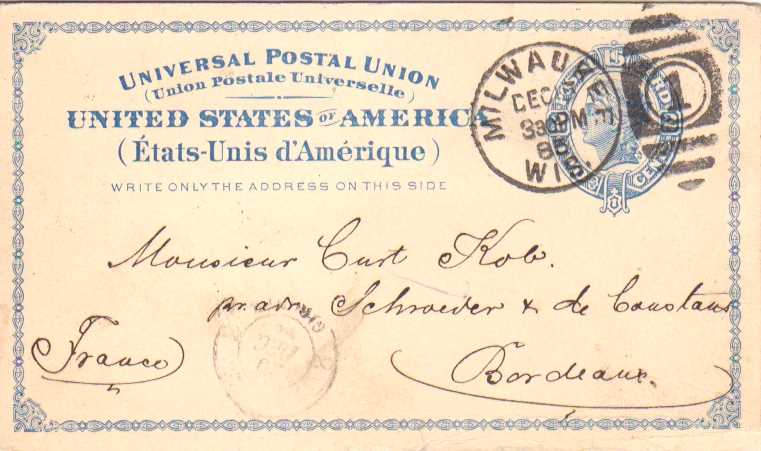 UNIVERSAL POSTAL UNION
(Union Postale Universelle)
UNITED STATES OF AMERICA
(États-Unis d'Amérique)
WRITE ONLY THE ADDRESS ON THIS SIDE
MILWAUKEE
DEC
PM
WIS.
1
CENTS
Monsieur Curt Kob.
pr. adr. Schroeder & de Constans
(Franco)
Bordeaux.